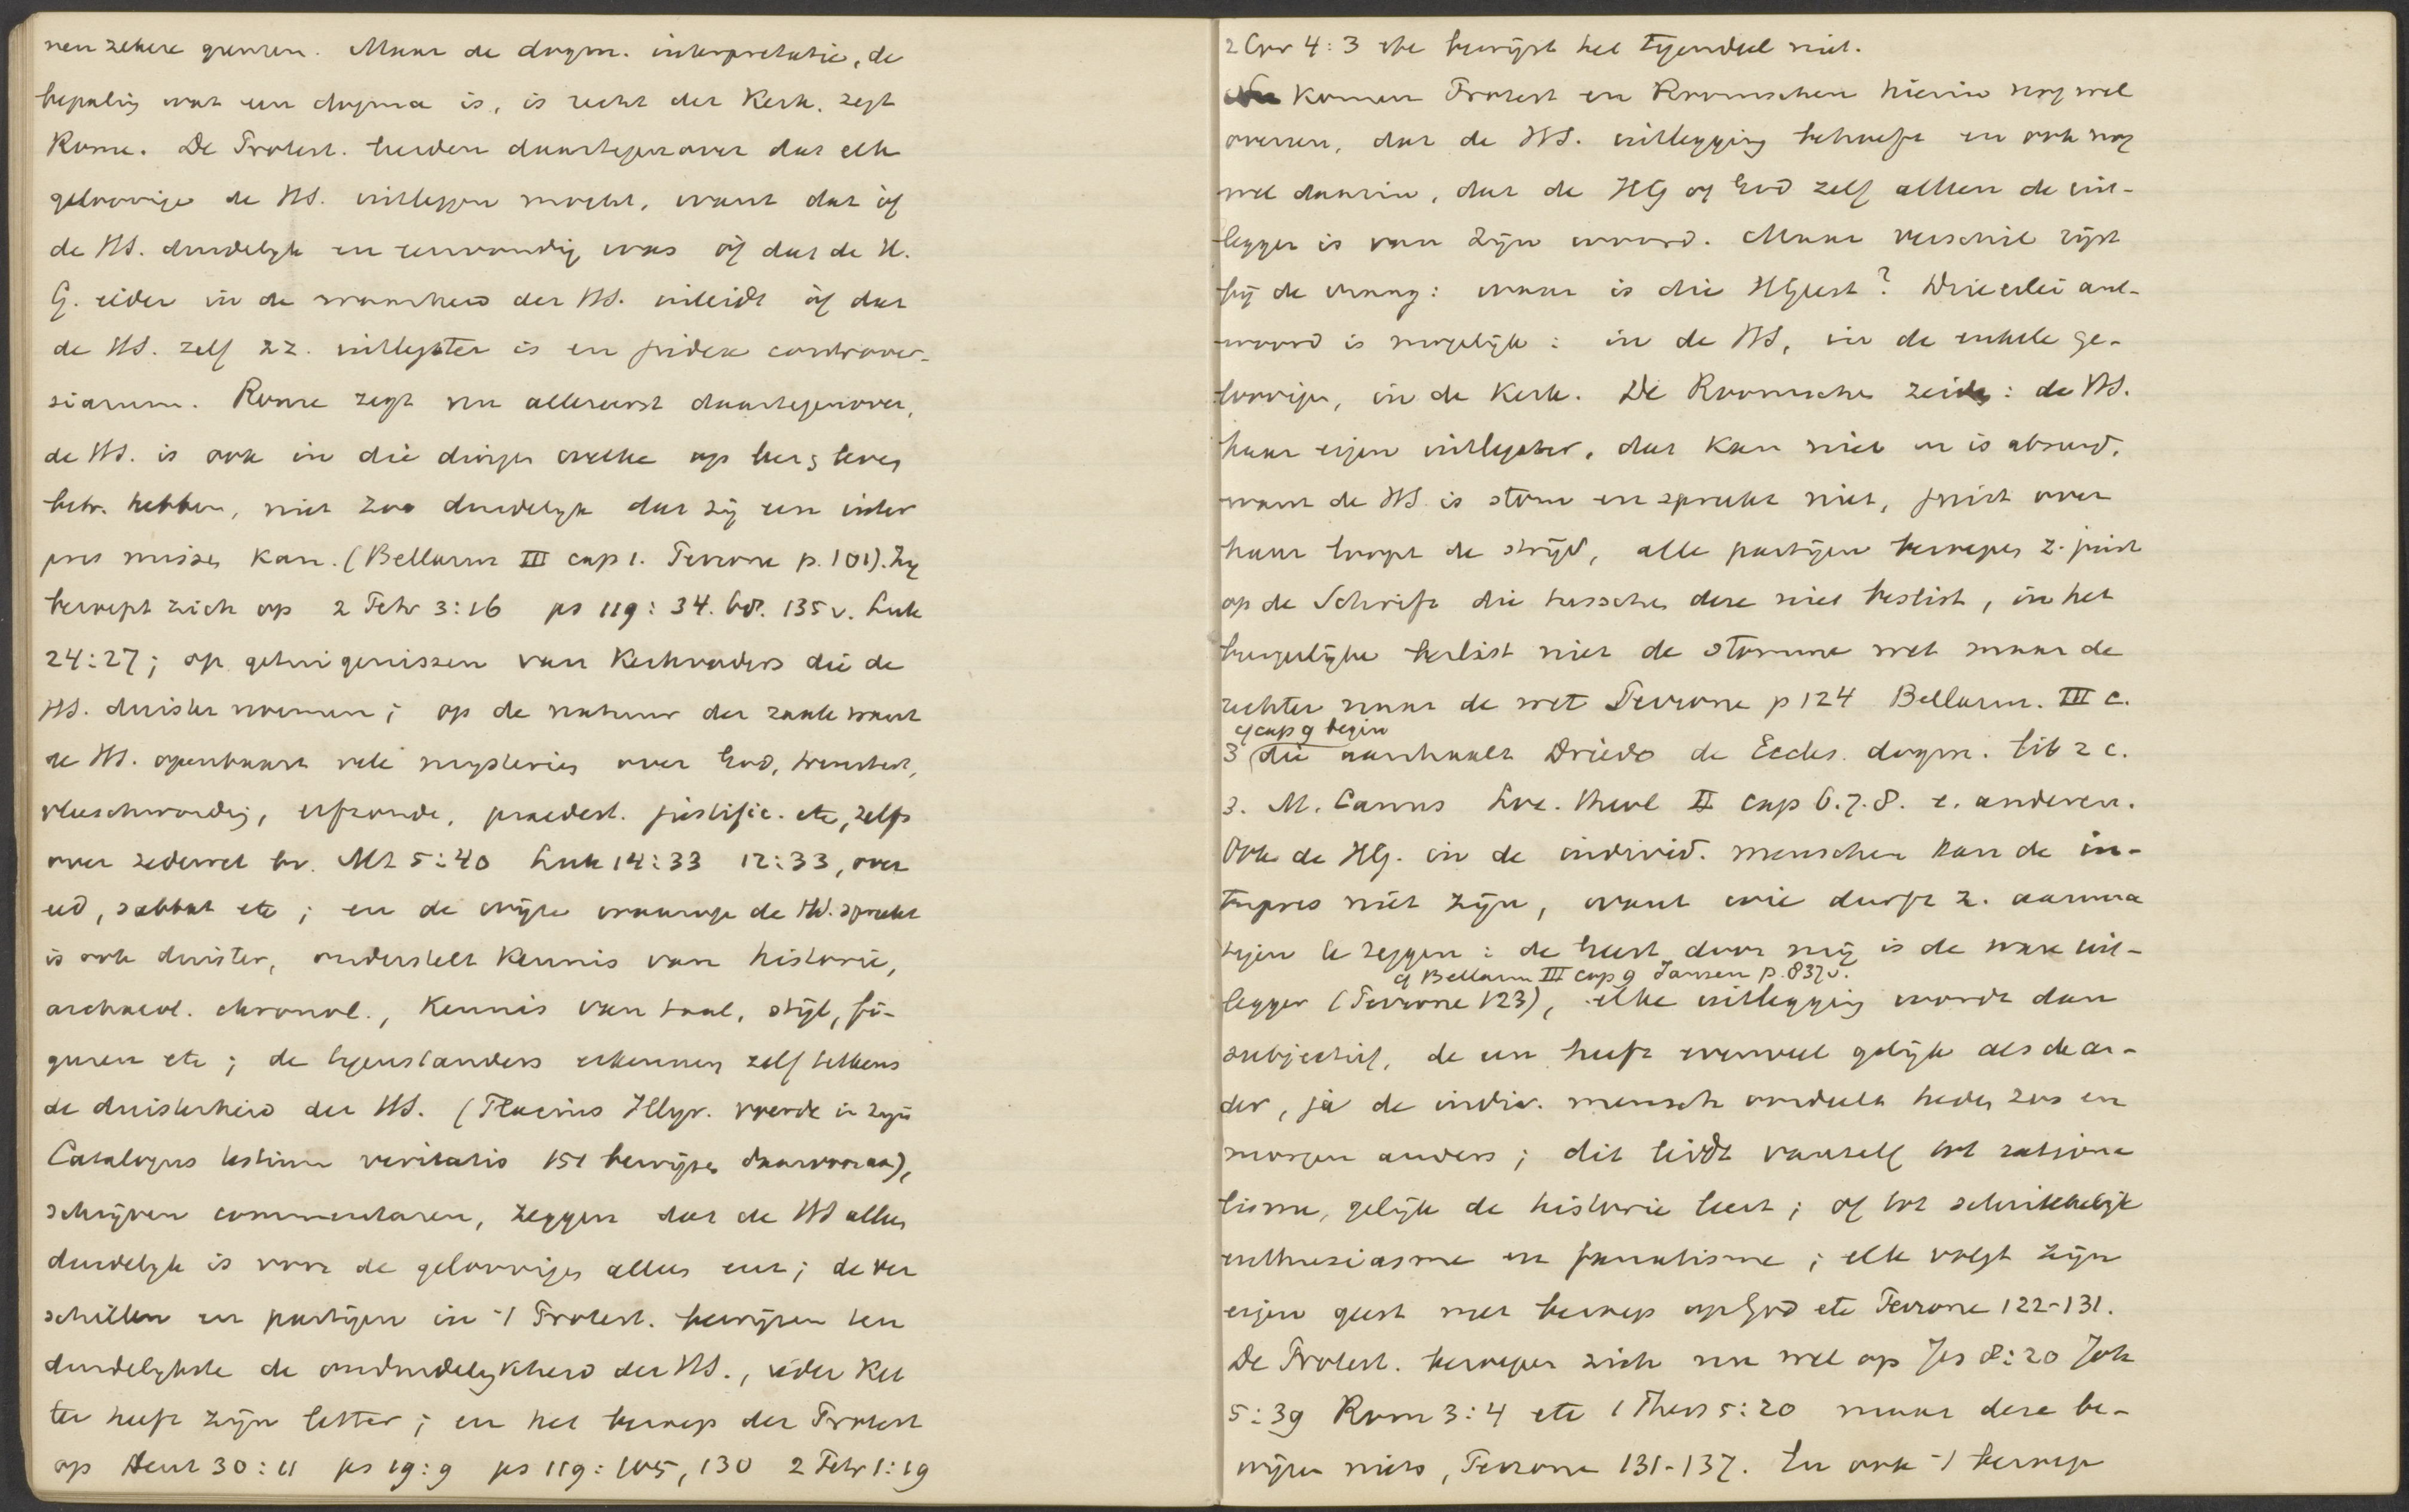 nen zekere grenzen. Maar de dogm. interpretatie, de
bepaling wat een dogma is, is recht der Kerk. zegt
Rome. De Protest. hielden daartegenover dat elk
geloovige de HS. uitleggen mocht, want dat òf
de HS. duidelijk en eenvoudig was òf dat de H.
G. ieder in de waarheid der HS. inleidt òf dat
de HS. zelf zz. uitlegster is en judex controver-
siarum. Rome zegt nu allereerst daartegenover,
de HS. is ook in die dingen welke op heil & leven
betr. hebben, niet zoo duidelijk dat zij een inter
pres missen kan. (Bellarm III cap 1. Perrone p. 101). Zij
beroept zich op 2 Petr 3:16 ps 119: 34. 68. 135 v. Luk
24:27; op getuigenissen van Kerkvaders die de
HS. duister noemen; op de natuur der zaak want
de HS. openbaart vele mysteries over God, drieëenh,
vleeschwording, erfzonde, praedest. justific. etc, zelfs
over zedewet bv. Mt 5:40 Luk 14:33 12:33, over
eed, sabbat etc; en de wijze waarop de HS. spreekt
is ook duister, onderstelt kennis van historie,
archaeol. chronol., kennis van taal, stijl, fi-
guren etc; de tegenstanders erkennen zelf telkens
de duisterheid der HS. (Flacius Illyr. voerde in zijn
Catalogus testium veritatis 151 bewijzen daarvoor aan),
schrijven commentaren, zeggen dat de HS alleen
duidelijk is voor de geloovigen alleen enz; de ver
schillen en partijen in 't Protest. bewijzen ten
duidelijkste de onduidelijkheid der HS., ieder ket
ter heeft zijn letter; en het beroep der Protest
op Deut 30:11 ps 19:9 ps 119: 105, 130 2 Petr 1:19
2 Cor 4:3 etc bewijst het tegendeel niet.
Nu komen Protest en Roomschen hierin nog wel
overeen, dat de HS. uitlegging behoeft en ook nog
wel daarin, dat de HG of God zelf alleen de uit-
legger is van Zijn woord. Maar verschil rijst
bij de vraag: waar is die HGeest? Drieërlei ant-
woord is mogelijk: in de HS, in de enkele ge-
loovigen, in de Kerk. De Roomsche zeide: de HS.
haar eigen uitlegster, dat kan niet en is absurd,
want de HS. is stom en spreekt niet, juist over
haar loopt de strijd, alle partijen beroepen z. juist
op de Schrift die tusschen deze niet beslist, in het
burgerlijke beslist niet de stomme wet maar de
rechter naar de wet Perrone p 124 Bellarm. III c.
cf cap 9 begin
3 (die aanhaalt Driedo de Eccles. dogm. lib 2 c.
3. M. Canus Loc. theol II cap 6.7.8. e. anderen.
Ook de HG. in de individ. menschen kan de in-
terpres niet zijn, want wie durft z. aanma
tigen te zeggen: de Geest door mij is de ware uit-
cf Bellarm III cap 9 Jansen p. 837 v.
legger (Perrone 123), elke uitlegging wordt dan
subjectief, de een heeft evenveel gelijk als de an-
der, ja de indiv. mensch oordeelt heden zus en
morgen anders; dit leidt vanzelf tot rationa
lisme, gelijk de historie leert; of tot schrikkelijk
enthusiasme en fanatisme; elk volgt zijn
eigen geest met beroep op God etc Perrone 122-131.
De Protest. beroepen zich nu wel op Jes 8:20 Joh
5:39 Rom 3:4 etc 1 Thess 5:20 maar deze be-
wijzen niets, Perrone 131-137. En ook 't beroep